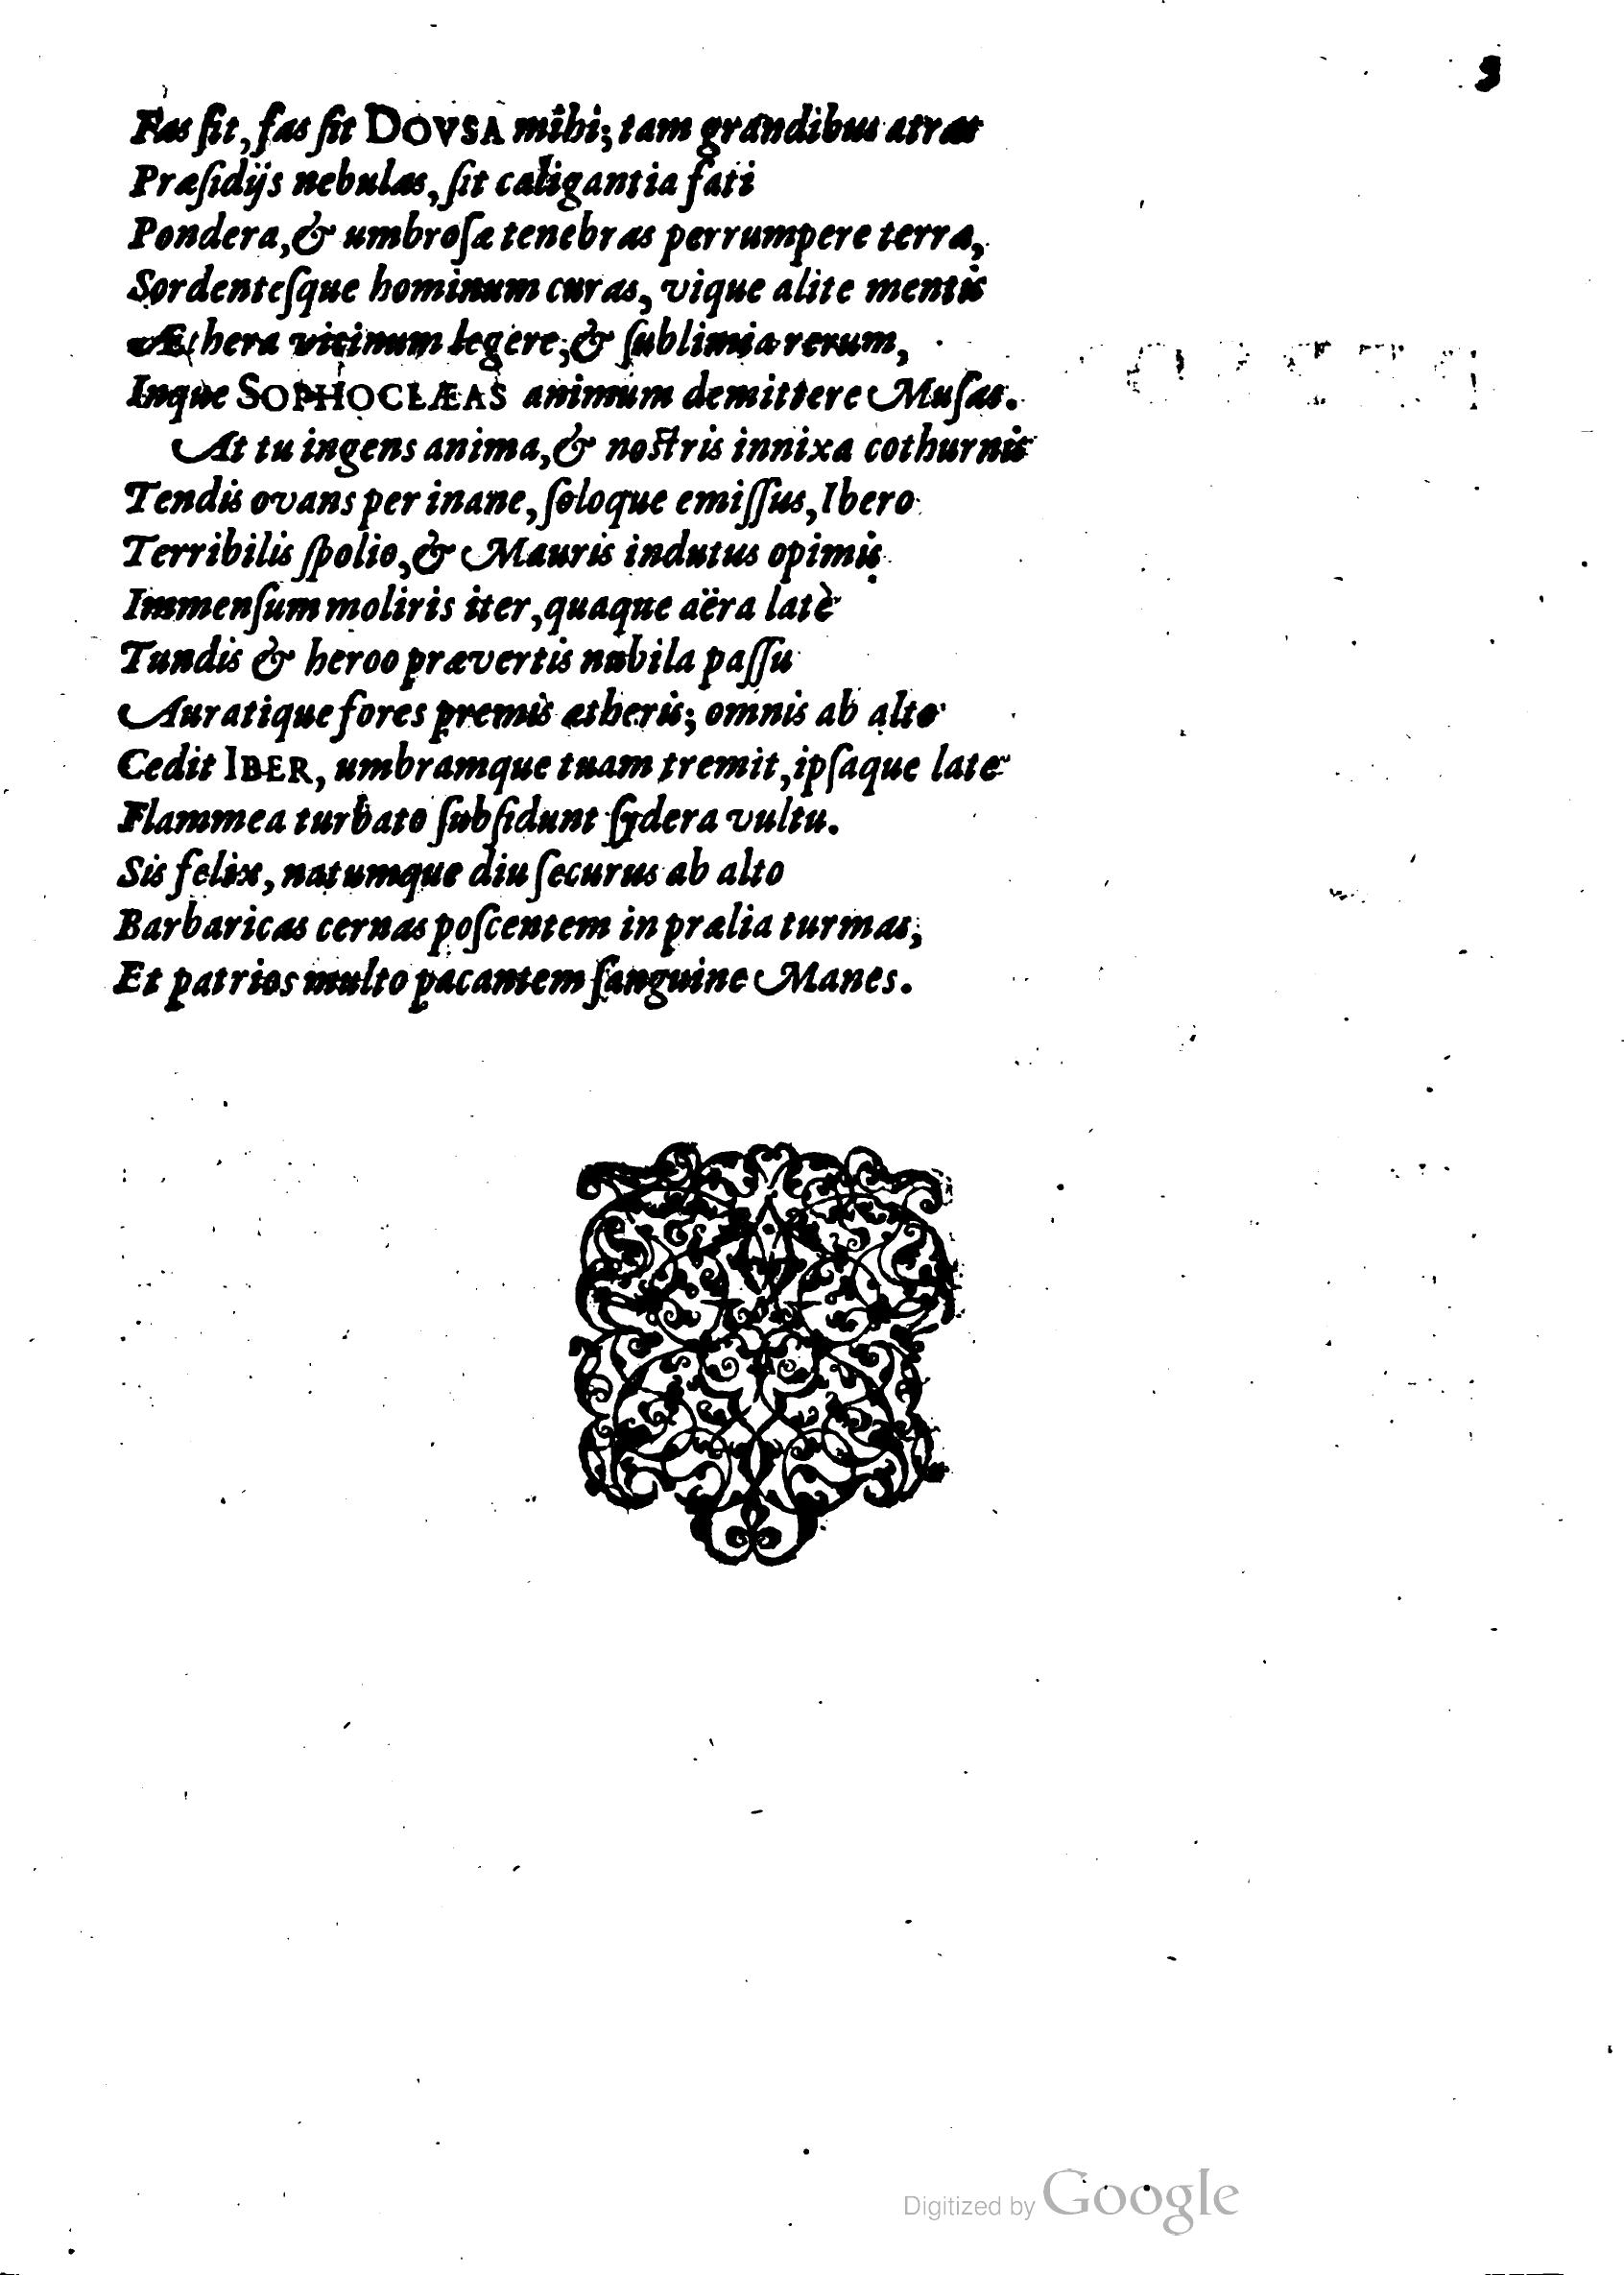 9
Fas ſit, fas ſit DOVSA mihi; tam grandibus atras
Præſidijs nebulas, ſit caligantia fati
Pondera, & umbroſæ tenebras perrumpere terræ,
Sordenteſque hominum curas, vique alite mentis
Æthera vicinum legere; & ſublimia rerum,
Inque SOPHOCLÆAS animum demittere Muſas.
At tu ingens anima, & noſtris innixa cothurnis
Tendis ovans per inane, ſoloque emiſſus, Ibero
Terribilis ſpolio, & Mauris indutus opimis
Immenſum moliris iter, quaque aëra latè
Tundis & heroo prævertis nubila paſſu
Auratique fores premis ætheris; omnis ab alto
Cedit IBER, umbramque tuam tremit, ipſaque late
Flammea turbato ſubſidunt ſydera vultu.
Sis felix, natumque diu ſecurus ab alto
Barbaricas cernas poſcentem in prælia turmas,
Et patrios multo pacantem ſanguine Manes.
Digitized by Google